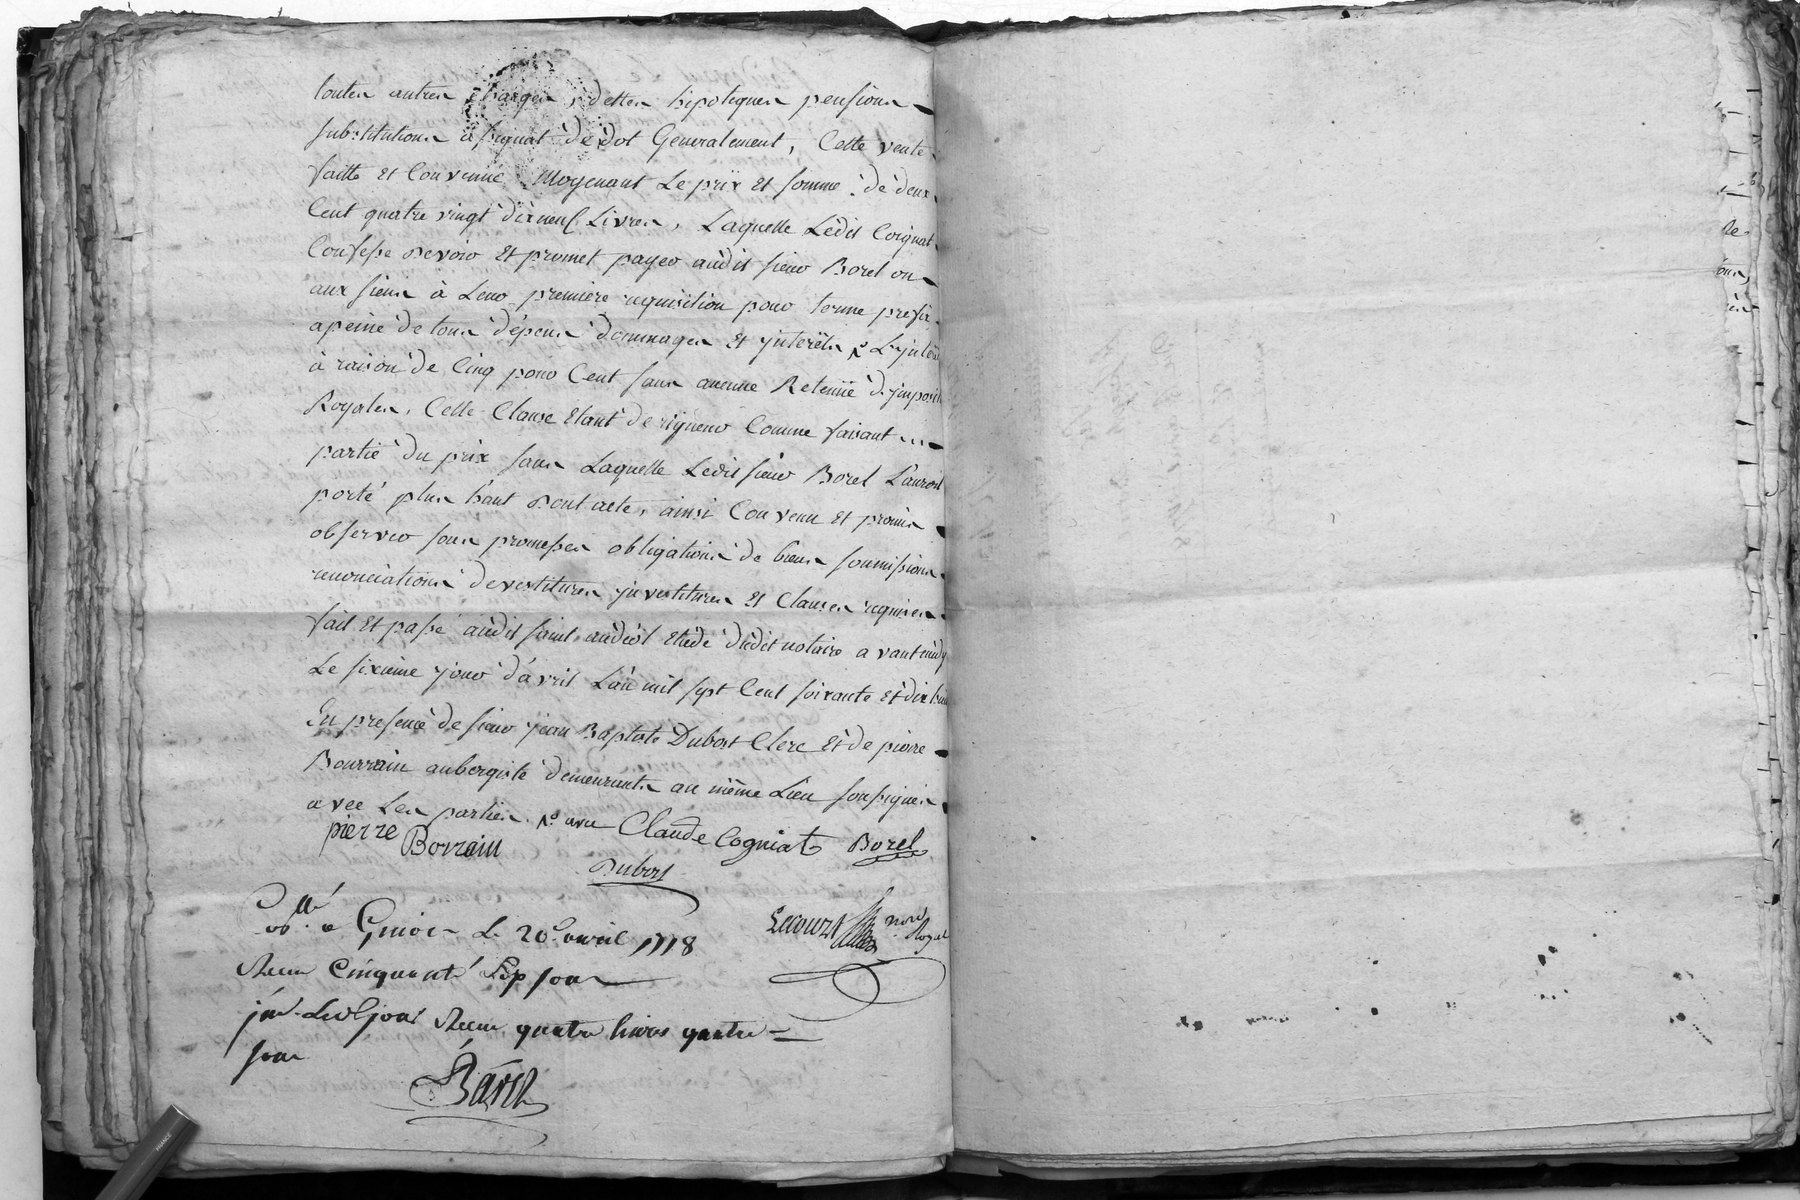 toutes autres charges, dettes hipoteques pensions
substitutions assignat de dot Generalement, Cette vente
faitte et Convenue Moyenant Le prix et somme de deux
Cent quatre vingt dix neuf Livres, Laquelle Ledit Cogniat
Confesse devoir et promet payer audit sieur Borel ou
aux siens à Leur première requisition pour terme prefix
apeine de tous dépens dommages et jnterêts, L'jnterêt
à raison de Cinq pour Cent sans aucune Retenüe d'jmposit
Royales, Cette Clause Etant de rigueur Comme faisant ...
partie du prix sans Laquelle Ledit sieur Borel L'auroit
porté plus haut dont acte, ainsi Convenu et promis
observer sous promesses obligations de biens soumissions
renonciations devestitures jnvestitures et Clauses requises
fait et passé audit saint andéol Etude dudit notaire avant midy
Le sixieme jour d'avril L'an mil sept Cent soixante et dix huit
En presence de sieur jean Baptiste Dubost Clerc et de pierre
Bourrain aubergiste demeurants au même Lieu soussignés
avec Les parties. avec Claude Cogniat Borel
pierre Borrain
Dubost
à Givors Le 20e avril 1778
Lecourt nore Royal
Recu Cinquante Sept sous
Recu quatre livres quatre
sous